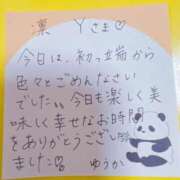 凛 Yさま♡
今日は、初っ端から
色々とごめんなさい
でした。今日も楽しく美
味しく幸せなお時間
をありがとうござい
ました
ゆうか